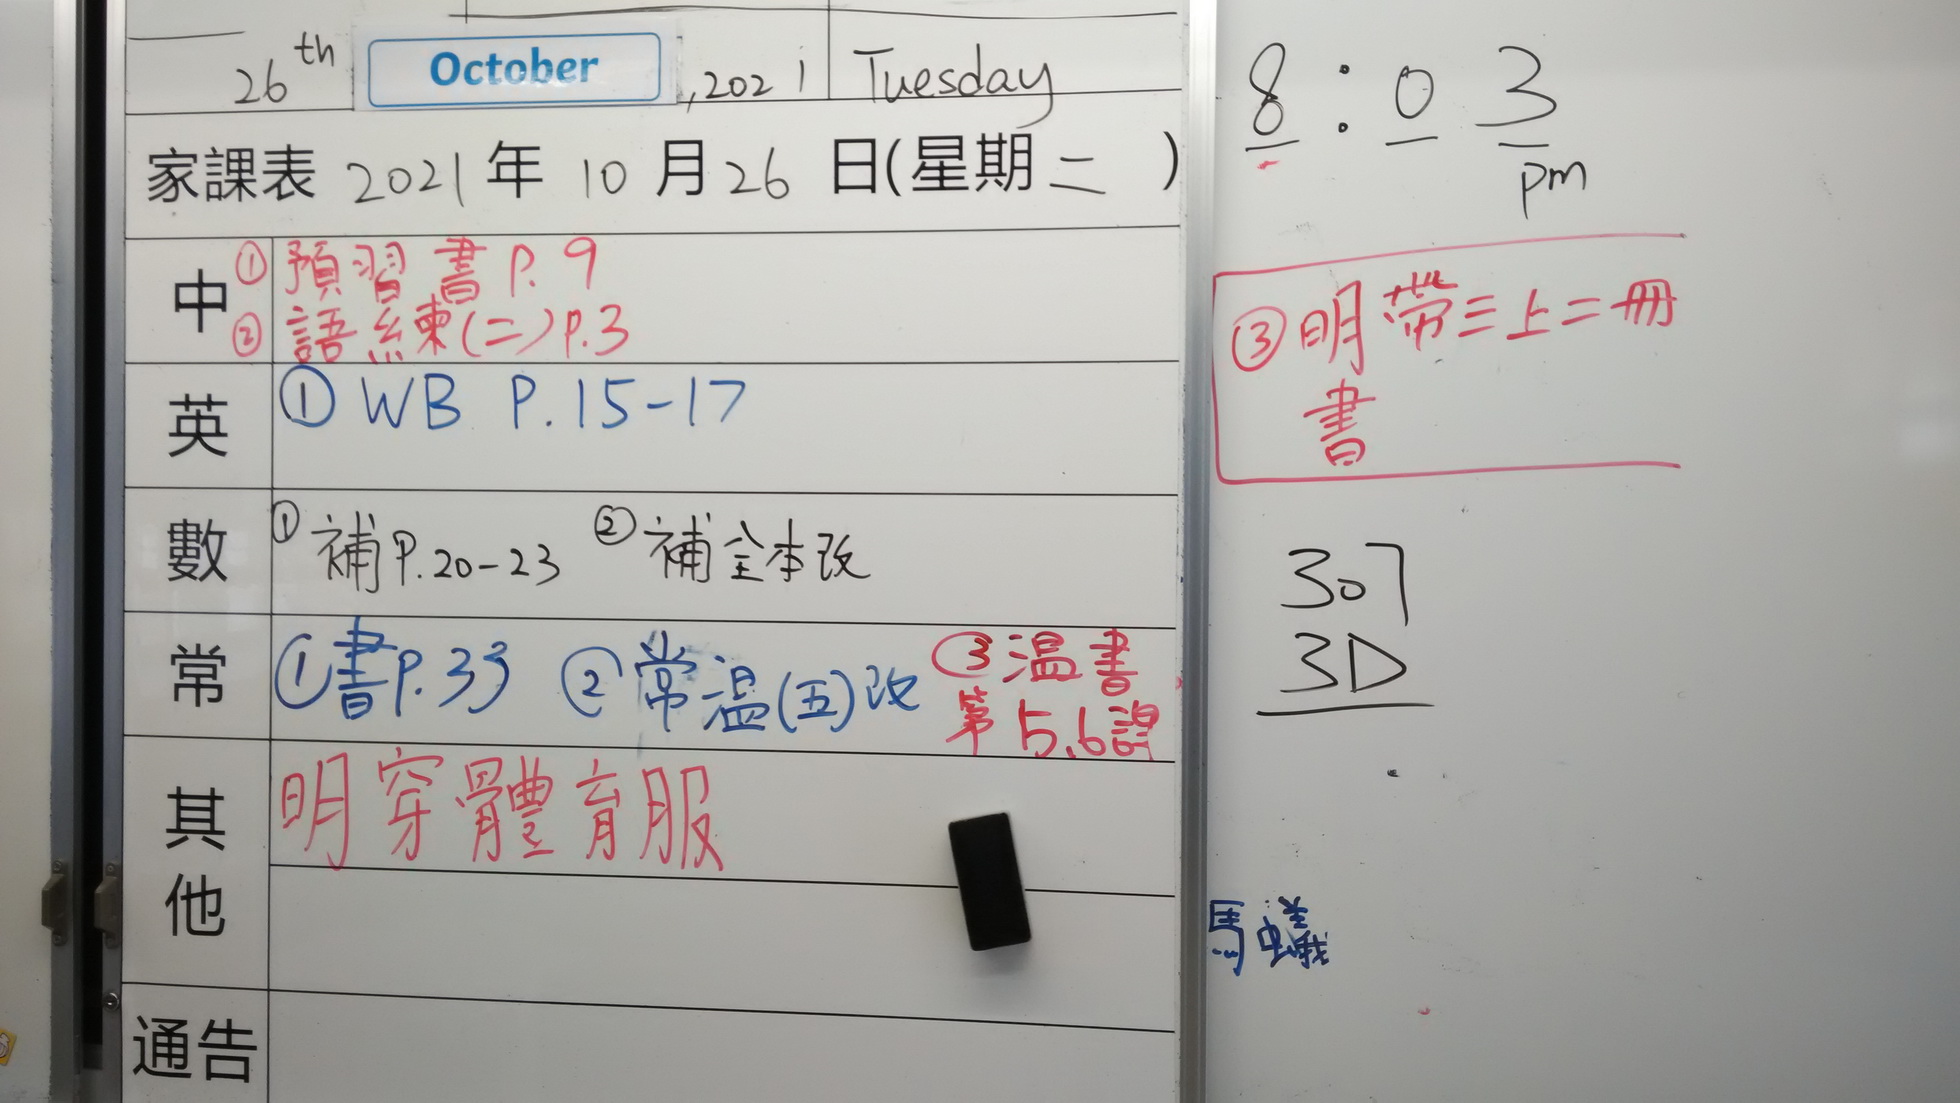 26th October, 2021 Tuesday
家課表 2021 年 10 月 26 日(星期二 )
中 ① 預習書 P. 9
② 語練(二) P.3
英 ① WB P. 15-17
數 ① 補 P. 20-23 ② 補全本改
常 ① 書 P. 33 ② 常溫(五)改 ③ 温書
第 5,6 課
其他 明穿體育服
通告
8:03
pm
③ 明帶三上二冊
書
307
3D
馬蟻